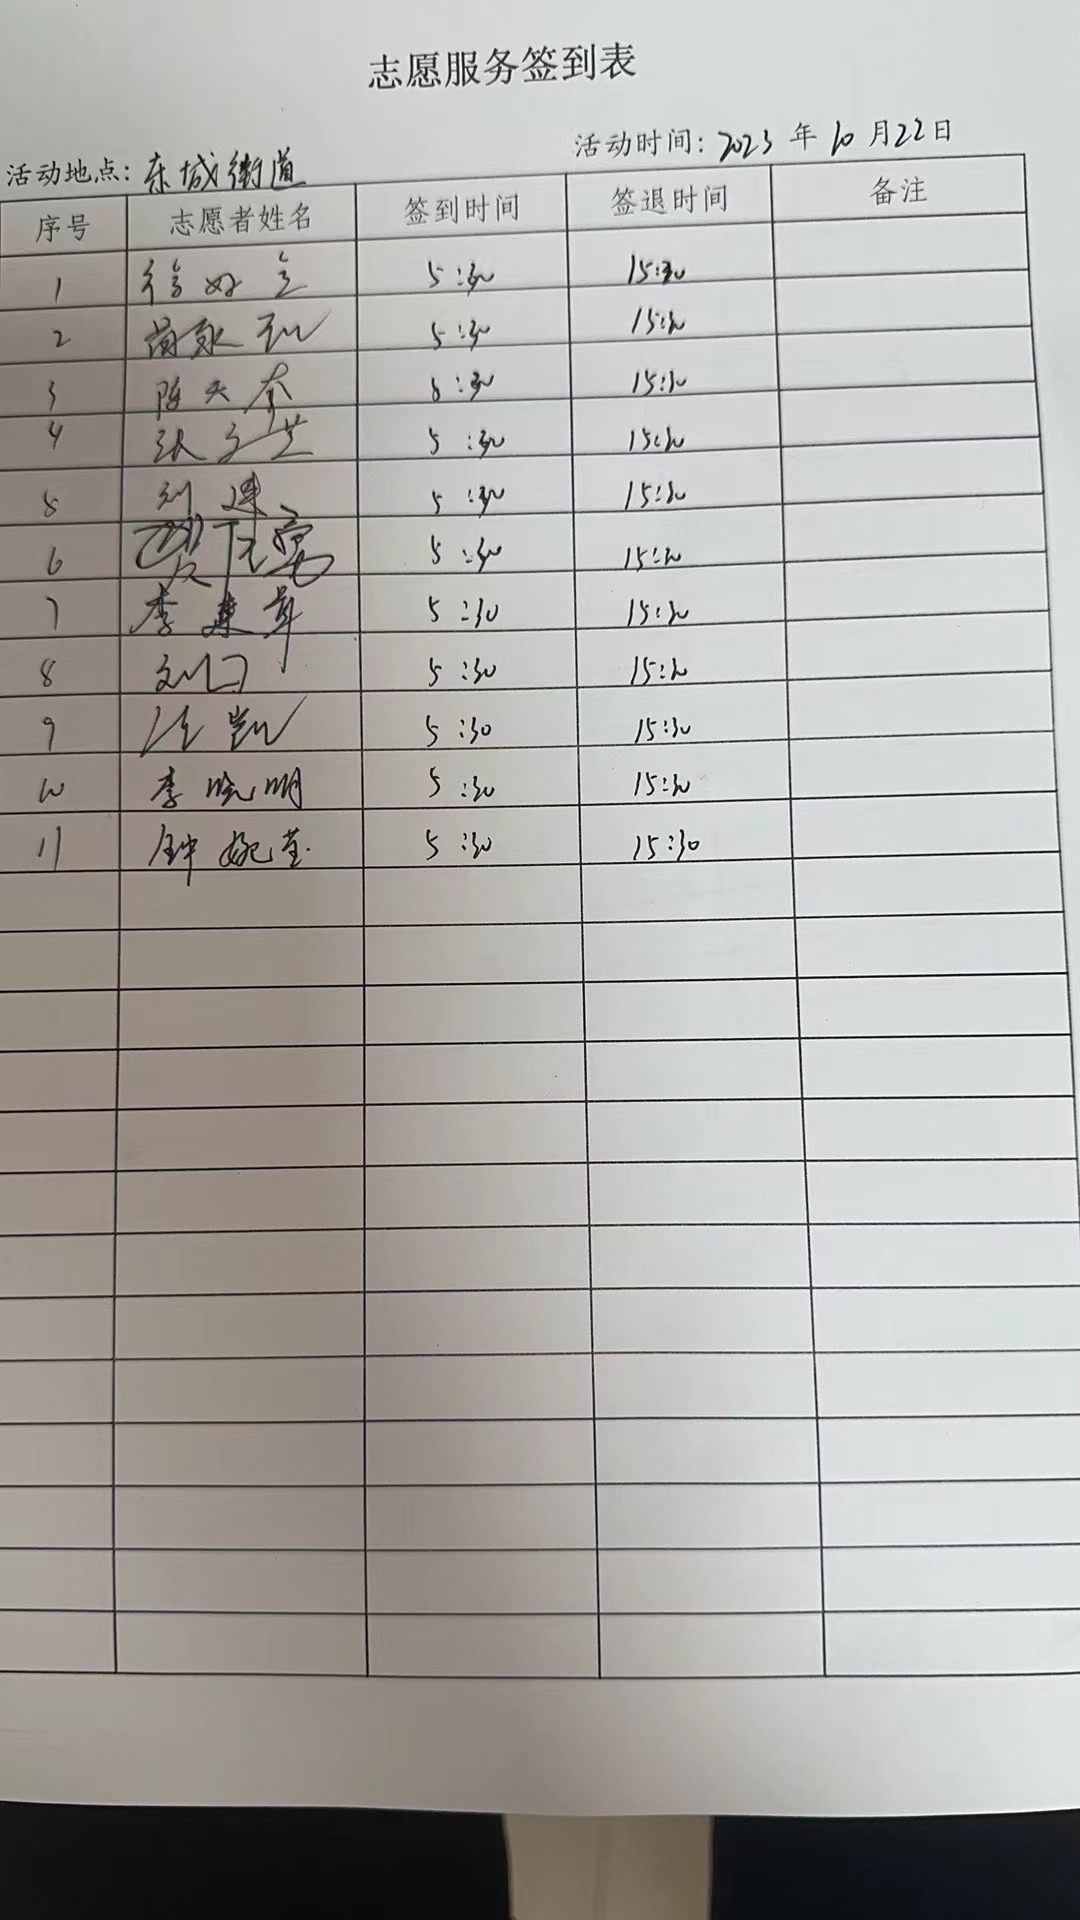 志愿服务签到表
活动地点：东城街道 活动时间：2023 年 10 月 22 日
序号 志愿者姓名 签到时间 签退时间 备注
1 5:30 15:30
2 5:30 15:30
3 陈天奇 5:30 15:30
4 张文芝 5:30 15:30
5 刘 5:30 15:30
6 5:30 15:30
7 李建军 5:30 15:30
8 刘 5:30 15:30
9 汪凯 5:30 15:30
10 李晓明 5:30 15:30
11 钟婉莹 5:30 15:30